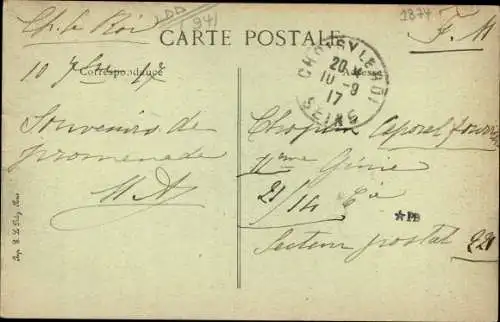 Ch. le Roi
94
1874
CARTE POSTALE
F. M
Correspondance
Adresse
CHOISY-LE-ROI
20
10 -9
17
SEINE
10 7bre 17
Souvenirs de
promenade
Caporal fourrier
Génie
21/14 Cie
★PB
Secteur postal 221